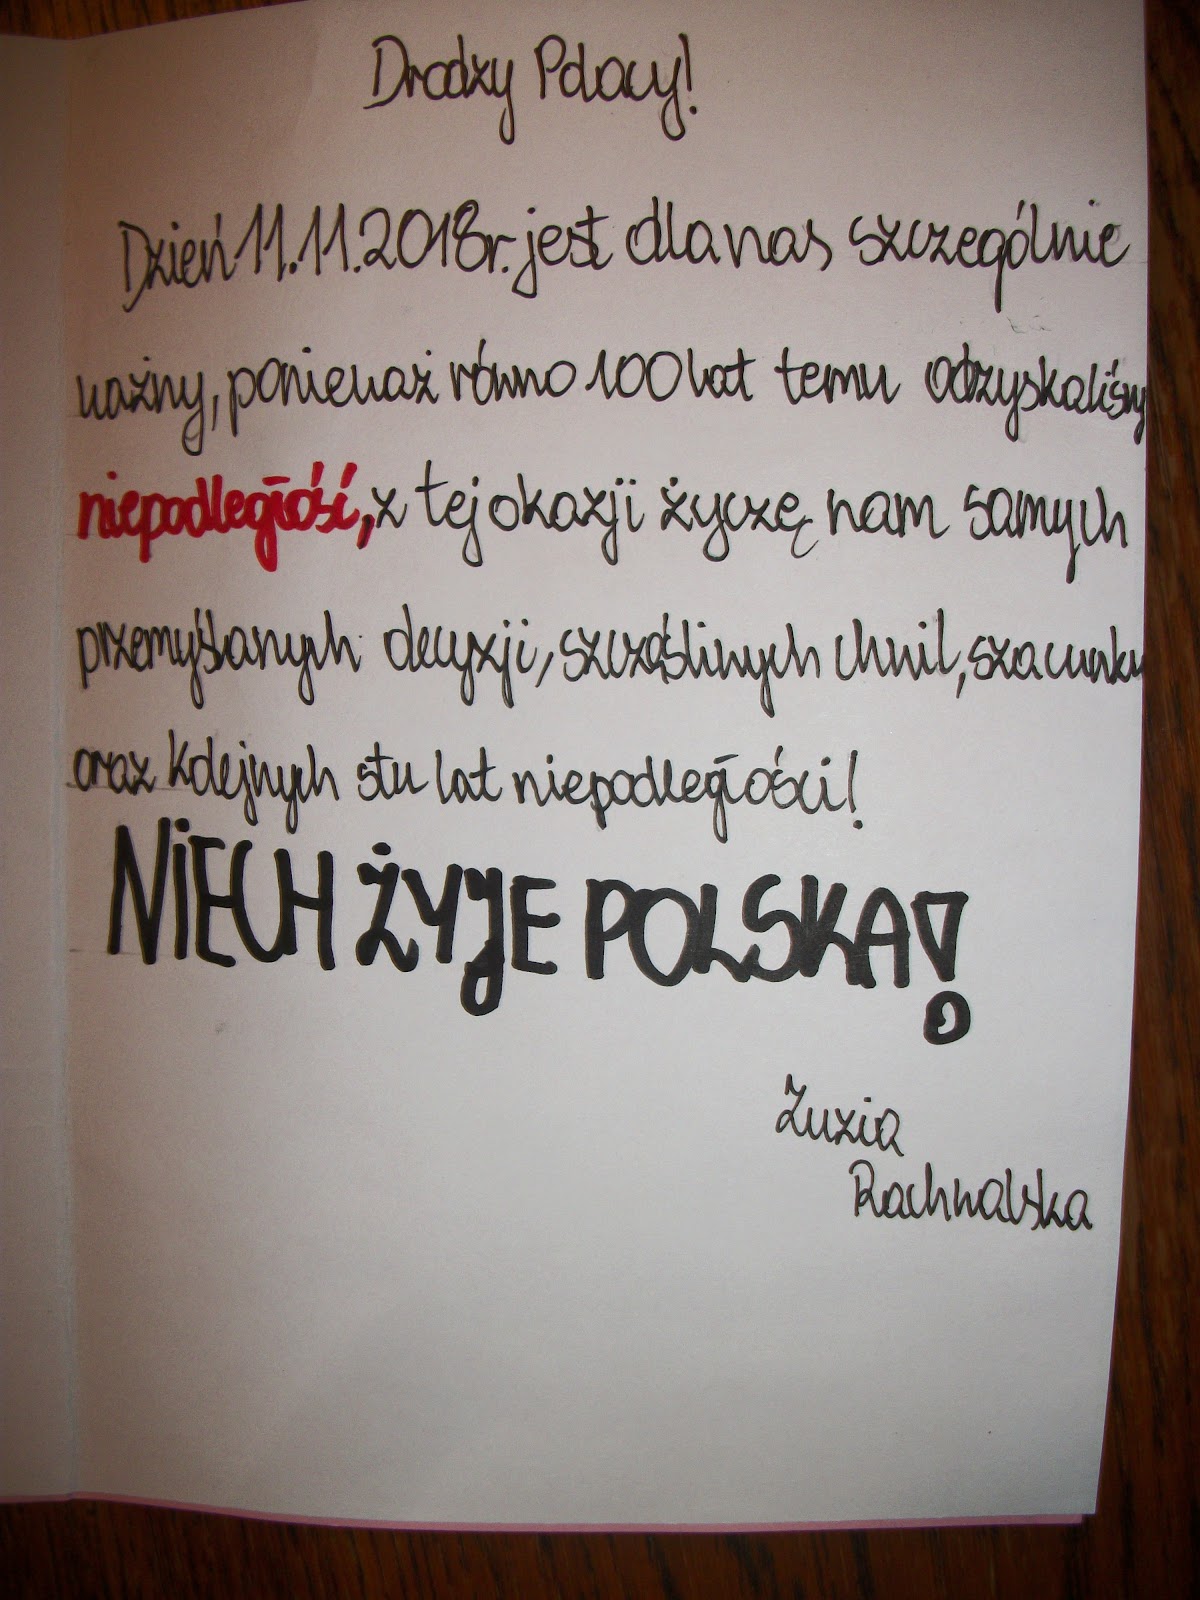 Drodzy Polacy!
Dzień 11.11.2018r. jest dla nas szczególnie
ważny, ponieważ równo 100 lat temu odzyskaliśmy
niepodległość, z tej okazji życzę nam samych
przemyślanych decyzji, szczęśliwych chwil, szacunku
oraz kolejnych stu lat niepodległości!
NIECH ŻYJE POLSKA!
Zuzia
Rachwalska